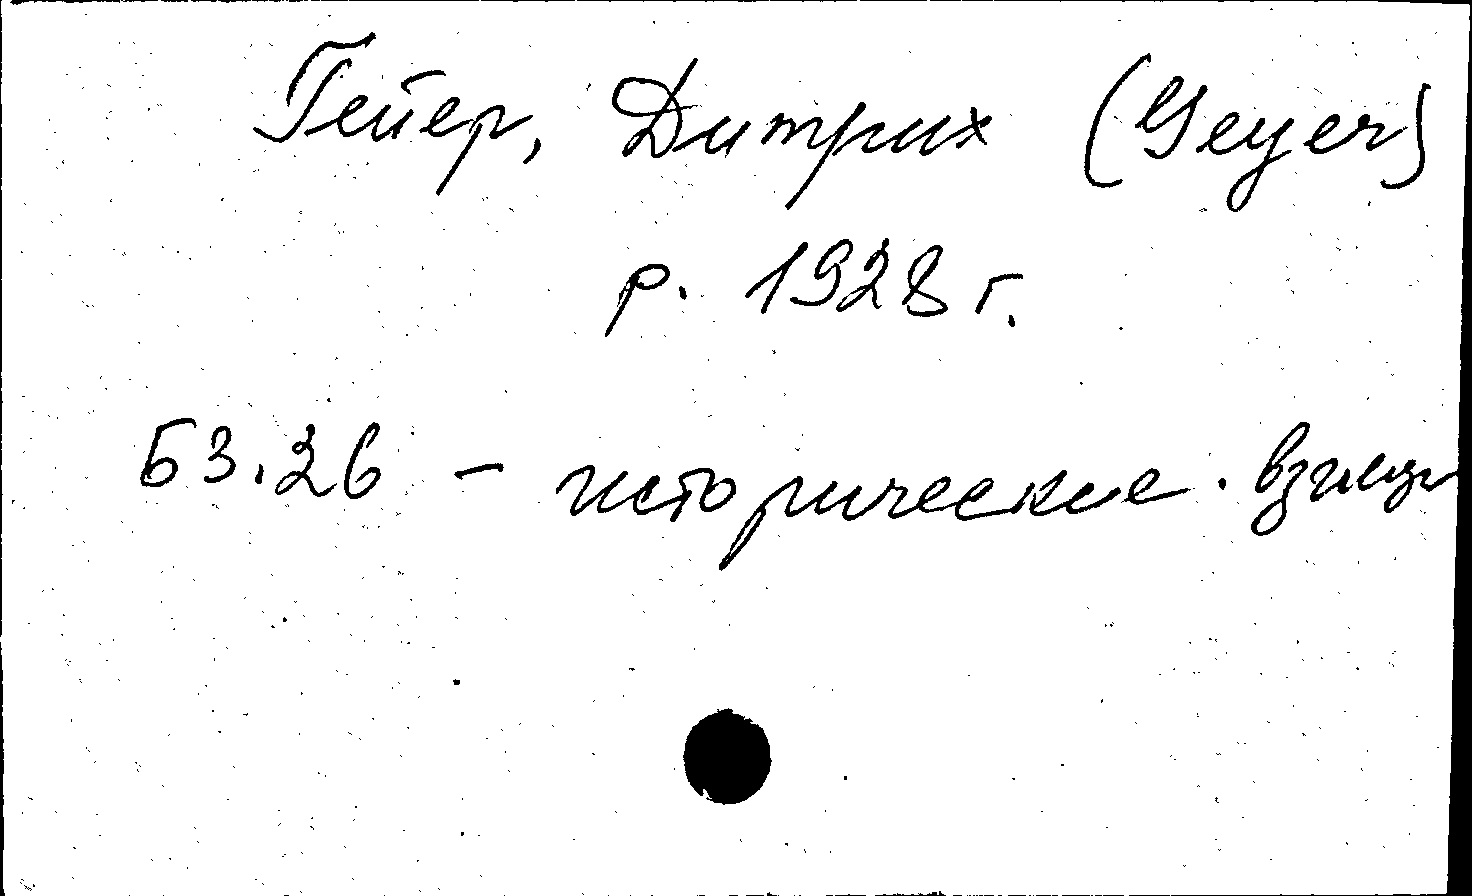 Гейер, Дитрих (Geyer)
р. 1928 г.
Б3.26 - исторические взгляды